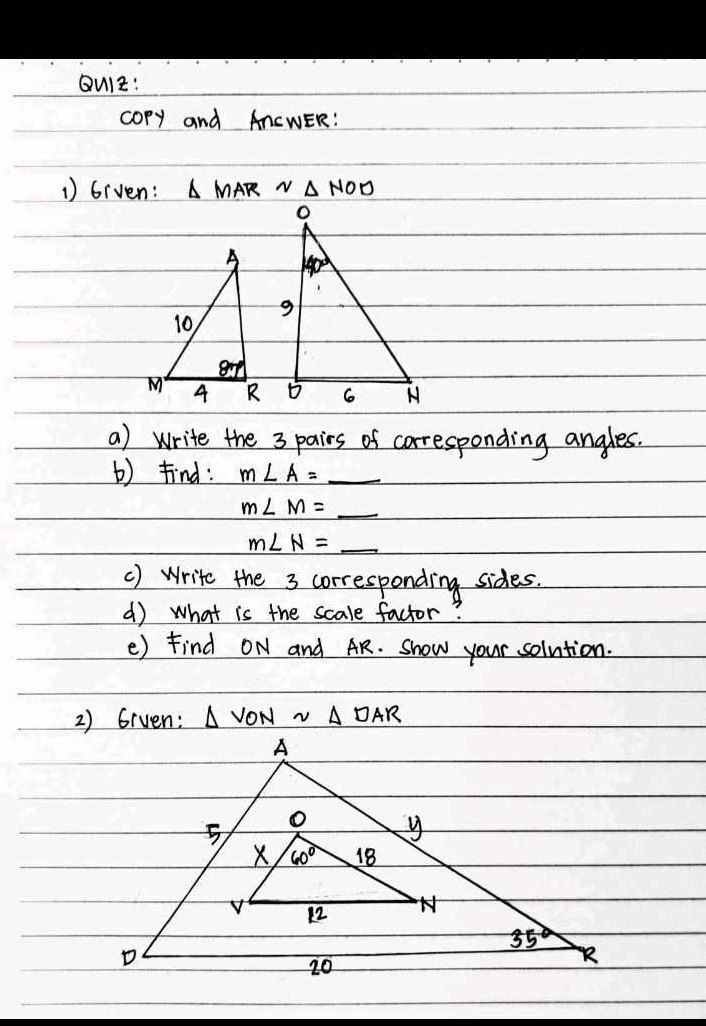 QUIZ:
COPY and AncWER:
1) Given: Δ MAR ~ Δ NOD
O
A 40°
10 9
87°
M 4 R D 6 N
a) Write the 3 pairs of corresponding angles.
b) Find: m∠A = ___
m∠M = ___
m∠N = ___
c) Write the 3 corresponding sides.
d) What is the scale factor?
e) Find ON and AR. Show your solution.
2) Given: Δ VON ~ Δ DAR
A
5 O y
X 60° 18
V 12 N
35°
D 20 R